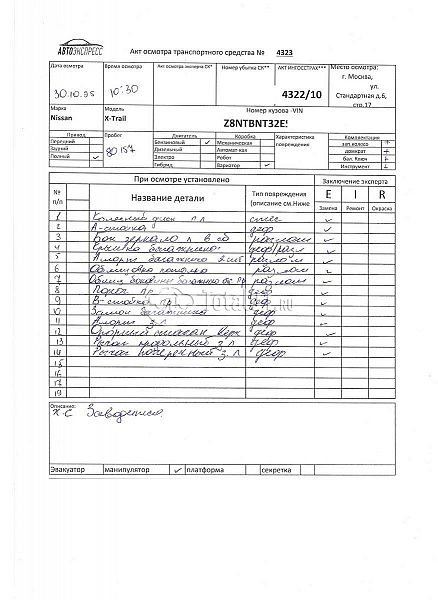 АВТОЭКСПРЕСС
Акт осмотра транспортного средства № 4323
Дата осмотра Время осмотра Акт осмотра эксперта СК* Номер убытка СК** АКТ ИНГОССТРАХ*** Место осмотра:
г. Москва,
ул.
Стандартная д.6,
стр.17
10:30 4322/10
Марка Модель Номер кузова -VIN
Nissan X-Trail Z8NTBNT32E
Привод Пробег Двигатель Коробка Характеристика повреждения Комплектация
Передний Бензиновый ✓ Механическая зап.колесо +
Задний Дизельный Автомат-кая домкрат +
Полный ✓ 80 157 Электро Робот бал. Ключ +
Гибрид. Вариатор ✓ Инструмент +
При осмотре установлено Заключение эксперта
№ п/п Название детали Тип повреждения (описание см.Ниже E I R
Замена Ремонт Окраска
1 Колесный диск п л ✓
2 А-стойка деф ✓
3 зеркало п разлом ✓
4 Крышка багажника ✓
5 багажника ✓
6 Обшивка разлом ✓
7 разлом ✓
8 Порог пр деф ✓
9 В-стойка пр деф ✓
10 Замок багажника деф ✓
11 з л деф ✓
12 Опорный деф ✓
13 Рычаг продольный з л деф ✓
14 Рычаг поперечный з л деф ✓
15
16
17
18
19
Total RU
Описание:
Х-С Заводится.
Эвакуатор манипулятор ✓ платформа секретка